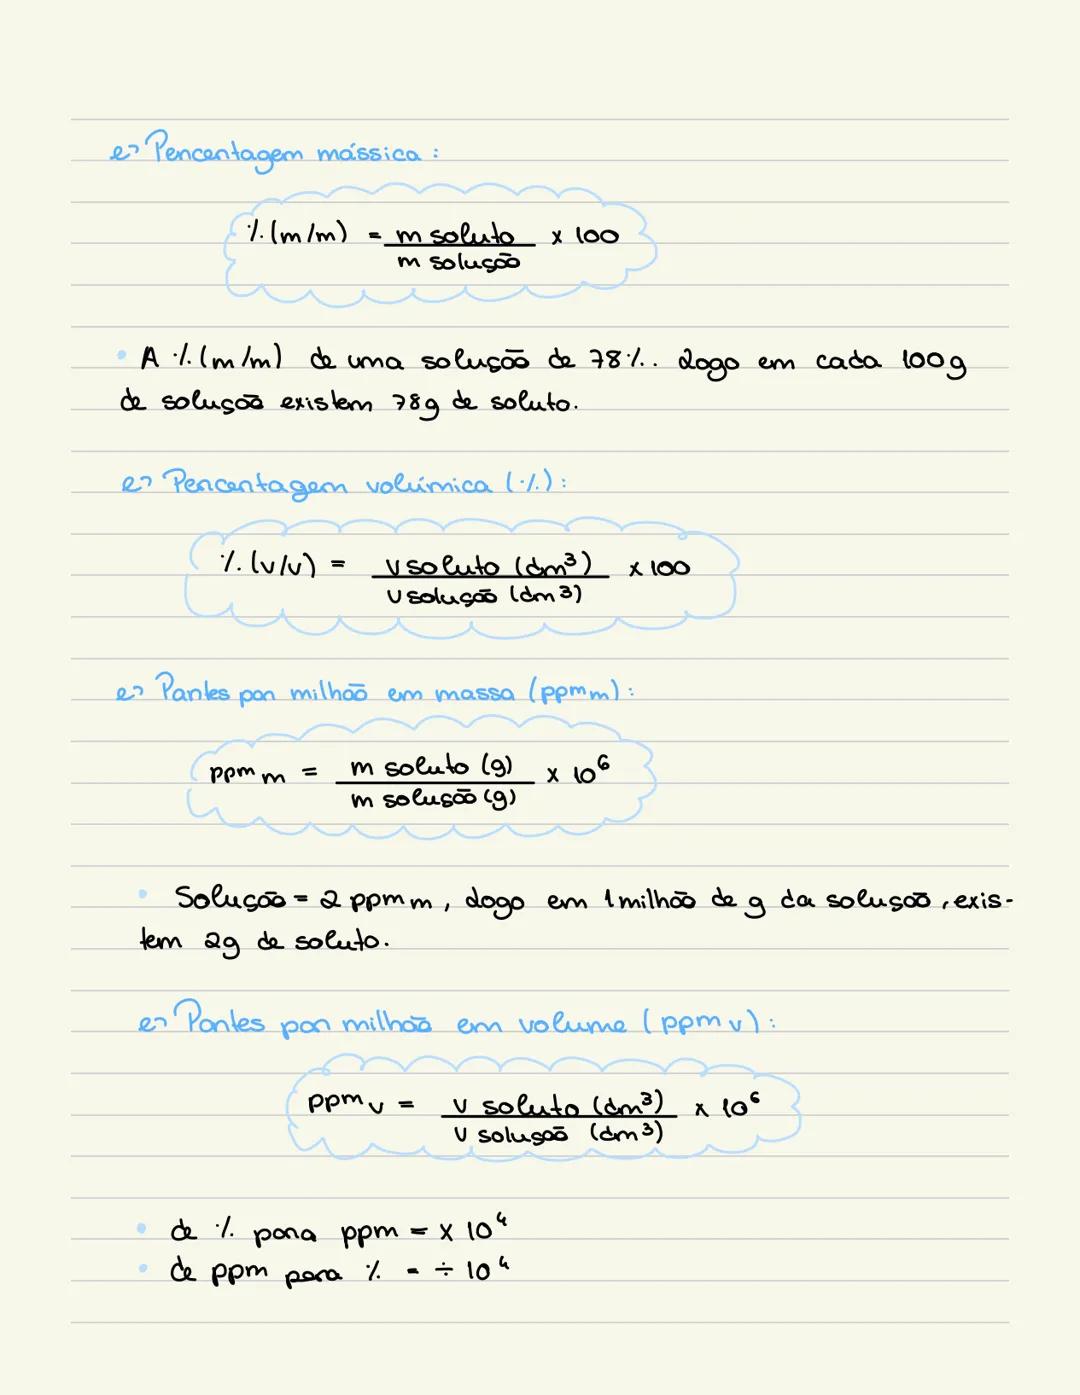 ↳ Percentagem mássica :
% (m/m) = m soluto / m solução x 100
• A % (m/m) de uma solução de 78%. Logo em cada 100g
de solução existem 78g de soluto.
↳ Percentagem volúmica (%) :
% (v/v) = v soluto (dm³) / v solução (dm³) x 100
↳ Partes por milhão em massa (ppm m) :
ppm m = m soluto (g) / m solução (g) x 10⁶
• Solução = 2 ppm m, logo em 1 milhão de g da solução, exis-
tem 2g de soluto.
↳ Partes por milhão em volume (ppm v) :
ppm v = v soluto (dm³) / v solução (dm³) x 10⁶
• de % para ppm = x 10⁴
• de ppm para % = ÷ 10⁴